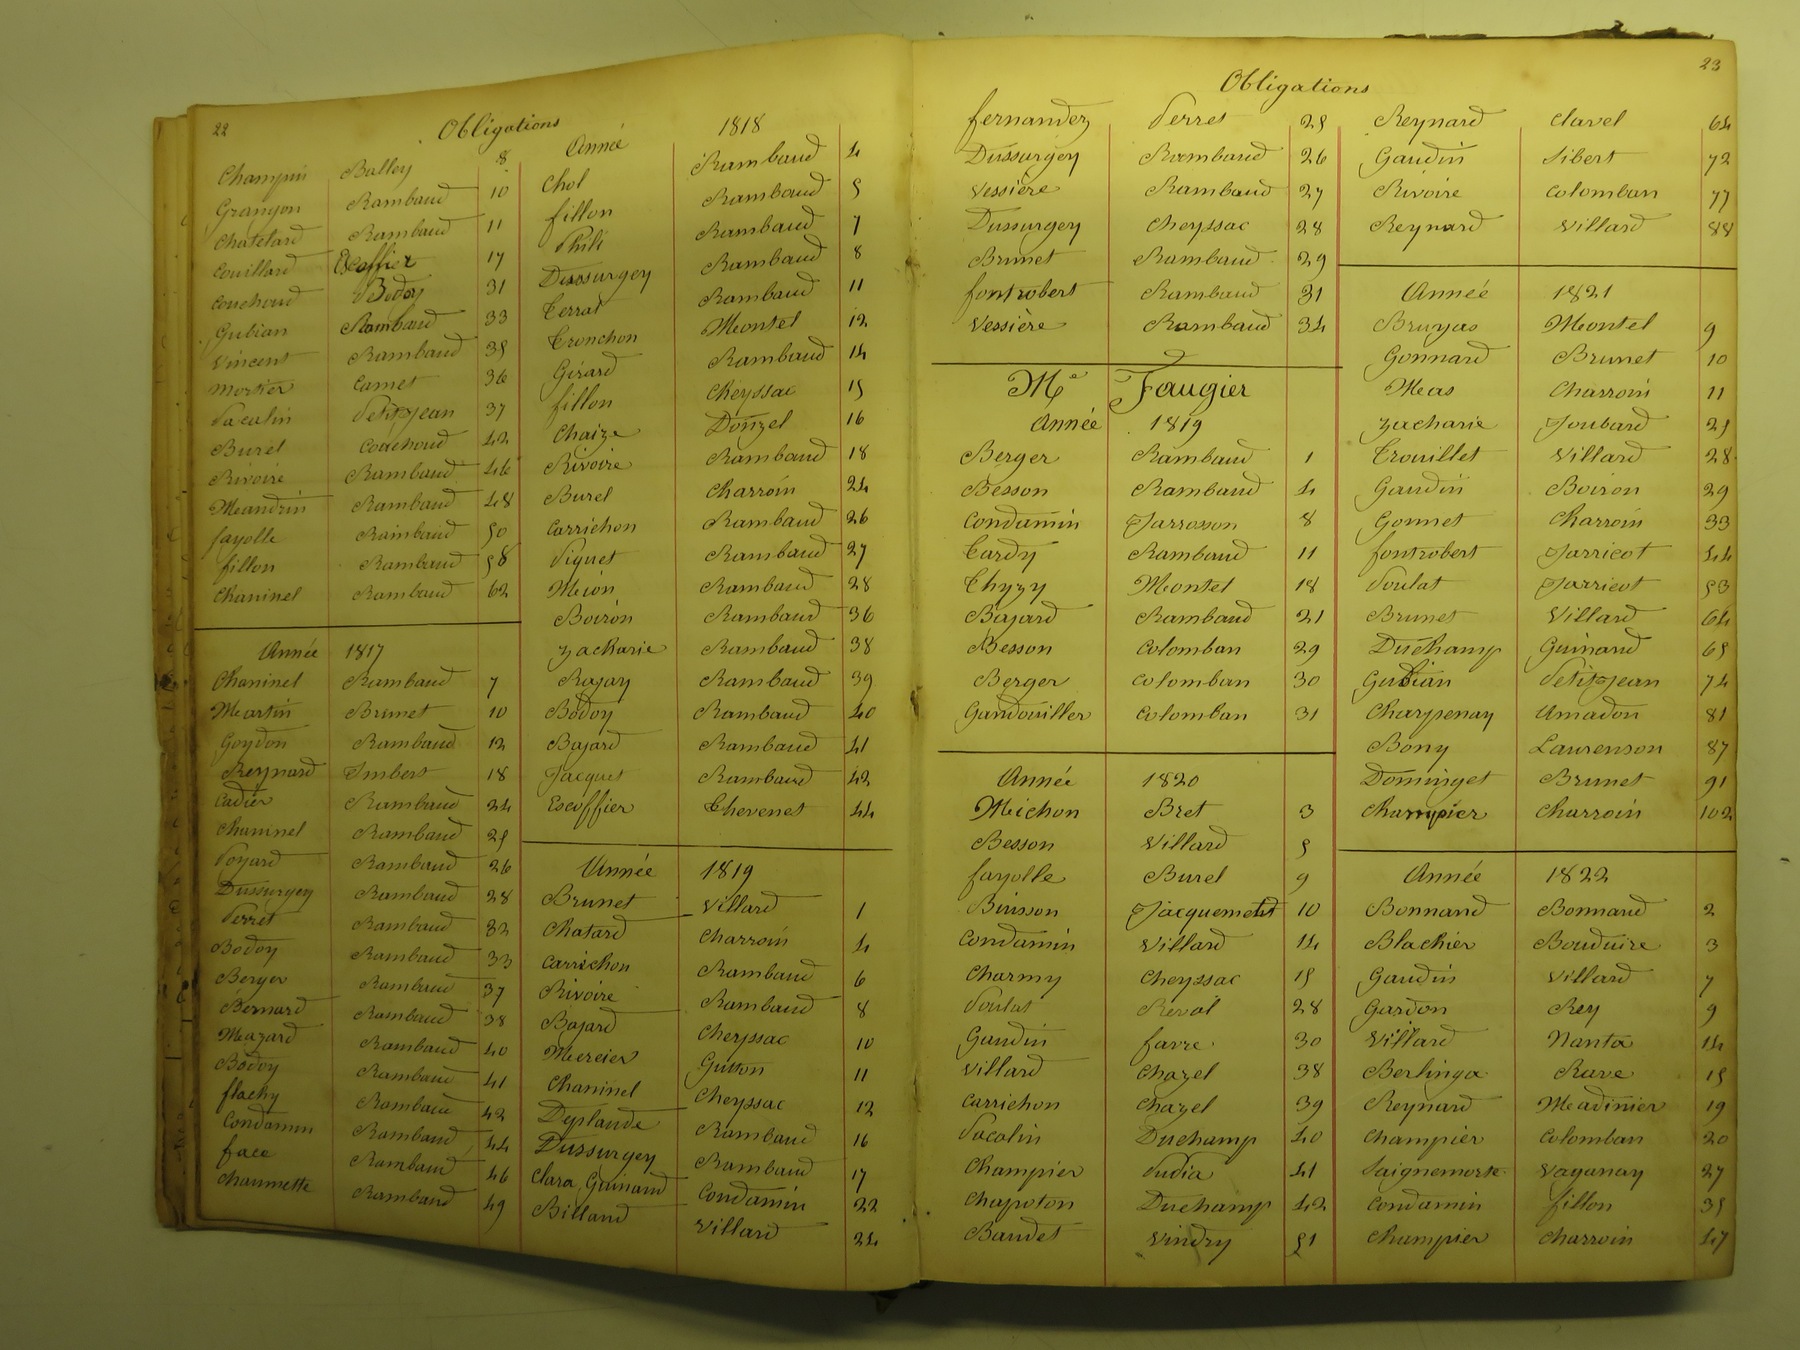 22
Obligations
Champin Balley 8
Grangon Rambaud 10
Chatelard Rambaud 11
Couillard Escoffier 17
Couchoud Bodoy 31
Gubian Rambaud 33
Vincent Rambaud 35
Mortier Camet 36
Pacalin Petitjean 37
Burel Couchoud 42
Rivoire Rambaud 46
Meandrin Rambaud 48
fayolle Rambaud 50
fillon Rambaud 58
Chaninel Rambaud 62
Année 1817
Chaninel Rambaud 7
Martin Brunet 10
Goydon Rambaud 12
Reynard Imbert 18
Cadier Rambaud 24
Chaninel Rambaud 25
Poyard Rambaud 26
Dussurgey Rambaud 28
Perret Rambaud 32
Bodoy Rambaud 33
Berger Rambaud 37
Bernard Rambaud 38
Mazard Rambaud 40
Bodoy Rambaud 41
flachy Rambaud 42
Condamin Rambaud 44
face Rambaud 46
Chaumette Rambaud 49
Année 1818
Chol Rambaud 4
fillon Rambaud 5
Phili Rambaud 7
Dussurgey Rambaud 8
Terrat Rambaud 11
Tronchon Montel 12
Girard Rambaud 14
fillon Cheyssac 15
Chaize Donzel 16
Rivoire Rambaud 18
Burel Charroin 24
Carrichon Rambaud 26
Piquet Rambaud 27
Meion Rambaud 28
Boiron Rambaud 36
Zacharie Rambaud 38
Rajay Rambaud 39
Bodoy Rambaud 40
Bajard Rambaud 41
Jacquet Rambaud 42
Escoffier Thevenet 44
Année 1819
Brunet Villard 1
Chatard Charroin 4
Carrichon Rambaud 6
Rivoire Rambaud 8
Bajard Cheyssac 10
Mercier Guiton 11
Chaninel Cheyssac 12
Deplaude Rambaud 16
Dussurgey Rambaud 17
Clara Guinand Condamin 22
Billand Villard 24
23
Obligations
fernandez Perret 25
Dussurgey Rambaud 26
Vessière Rambaud 27
Dussurgey Cheyssac 28
Brunet Rambaud 29
fontrobert Rambaud 31
Vessière Rambaud 34
Me Faugier
Année 1819
Berger Rambaud 1
Besson Rambaud 4
Condamin Jarrosson 8
Tardy Rambaud 11
Thyzy Montel 18
Bajard Rambaud 21
Besson Colomban 29
Berger Colomban 30
Gandouiller Colomban 31
Année 1820
Michon Bret 3
Besson Villard 5
fayolle Burel 9
Buisson Jacquement 10
Condamin Villard 14
Charmy Cheyssac 15
Poulat Reval 28
Gaudin favre 30
Villard Chazel 38
Carrichon Chazel 39
Pacalin Duchamp 40
Champier Pudia 41
Chapoton Duchamp 42
Baudet Vindry 51
Reynard Clavel 64
Gaudin Sibert 72
Rivoire Colomban 77
Reynard Villard 88
Année 1821
Bruyas Montel 9
Gonnard Brunet 10
Meas Charroin 11
Zacharie Joubard 25
Trouillet Villard 28
Gaudin Boiron 29
Gonnet Charroin 33
fontrobert Jarricot 44
Poulat Jarricot 53
Brunet Villard 64
Duchamp Guinand 65
Gubian Petitjean 74
Charpenay Amadon 81
Bony Laurenson 87
Dominget Brunet 91
Champier Charroin 102
Année 1822
Bonnand Bonnand 2
Blachier Bouduire 3
Gaudin Villard 7
Gardon Rey 9
Villard Nanta 14
Berlinga Rave 15
Reynard Meadinier 19
Champier Colomban 20
Saignemorte Vaganay 27
Condamin fillon 35
Champier Charroin 47